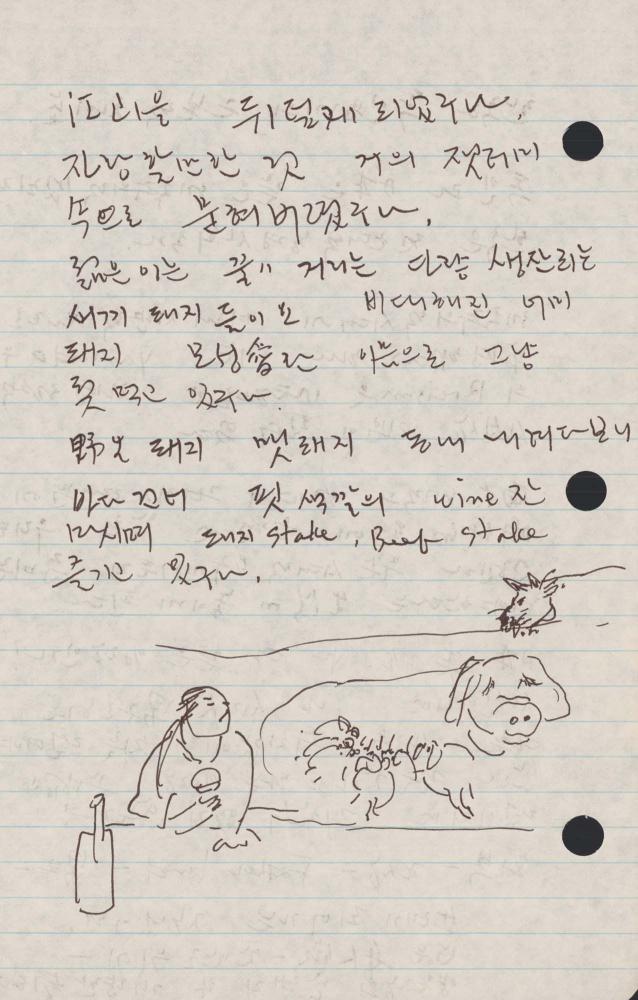 江山을 뒤덮게 되었구나.
자랑할만한 것 거의 잿더미
속으로 묻혀버렸구나.
젊은이는 꿀꿀 거리는 다량 생산되는
새끼 돼지 들이요 비대해진 어미
돼지 모성愛란 이름으로 그냥
젖 먹고 있구나.
野生 돼지 멧돼지
바다건너 핏 색깔의 wine 잔
마시며 돼지 stake, Beef stake
즐기고 있구나.